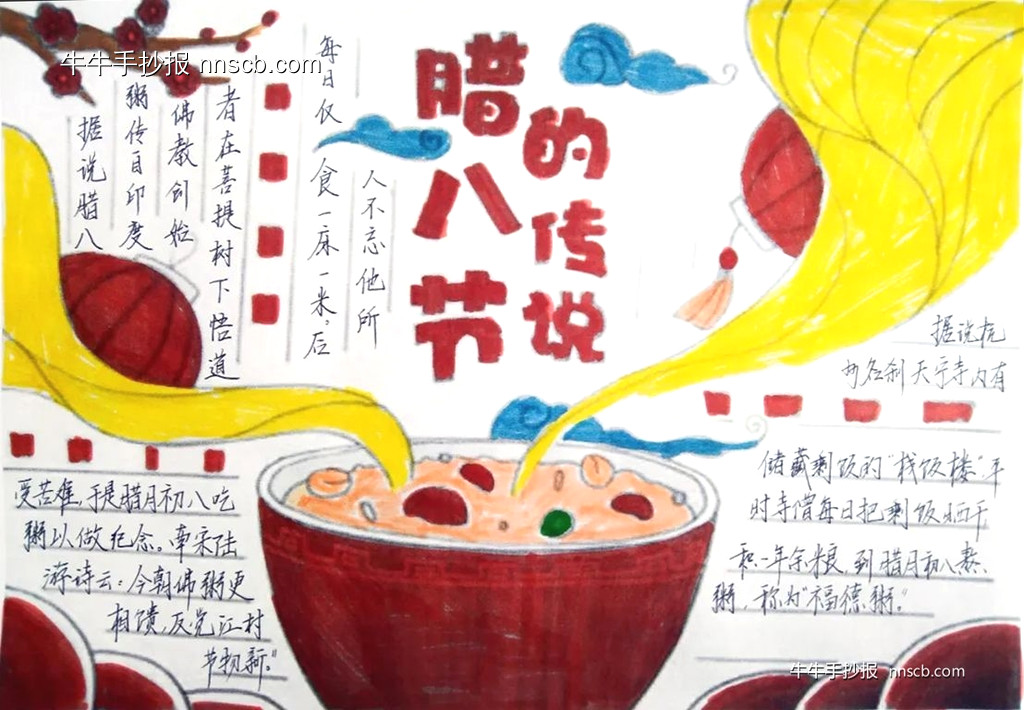 牛牛手抄报 nnscb.com
腊八节
的传说
据说腊八
粥传自印度
佛教创始
者在菩提树下悟道
每日仅食一麻一米。后
人不忘他所
受苦难，于是腊月初八吃
粥以做纪念。南宋陆
游诗云：今朝佛粥更
相馈，反觉江村
节物新。”
据说杭
州名刹天宁寺内有
储藏剩饭的“栈饭楼”平
时寺僧每日把剩饭晒干
积一年余粮，到腊月初八熬
粥，称为“福德粥”。
牛牛手抄报 nnscb.com